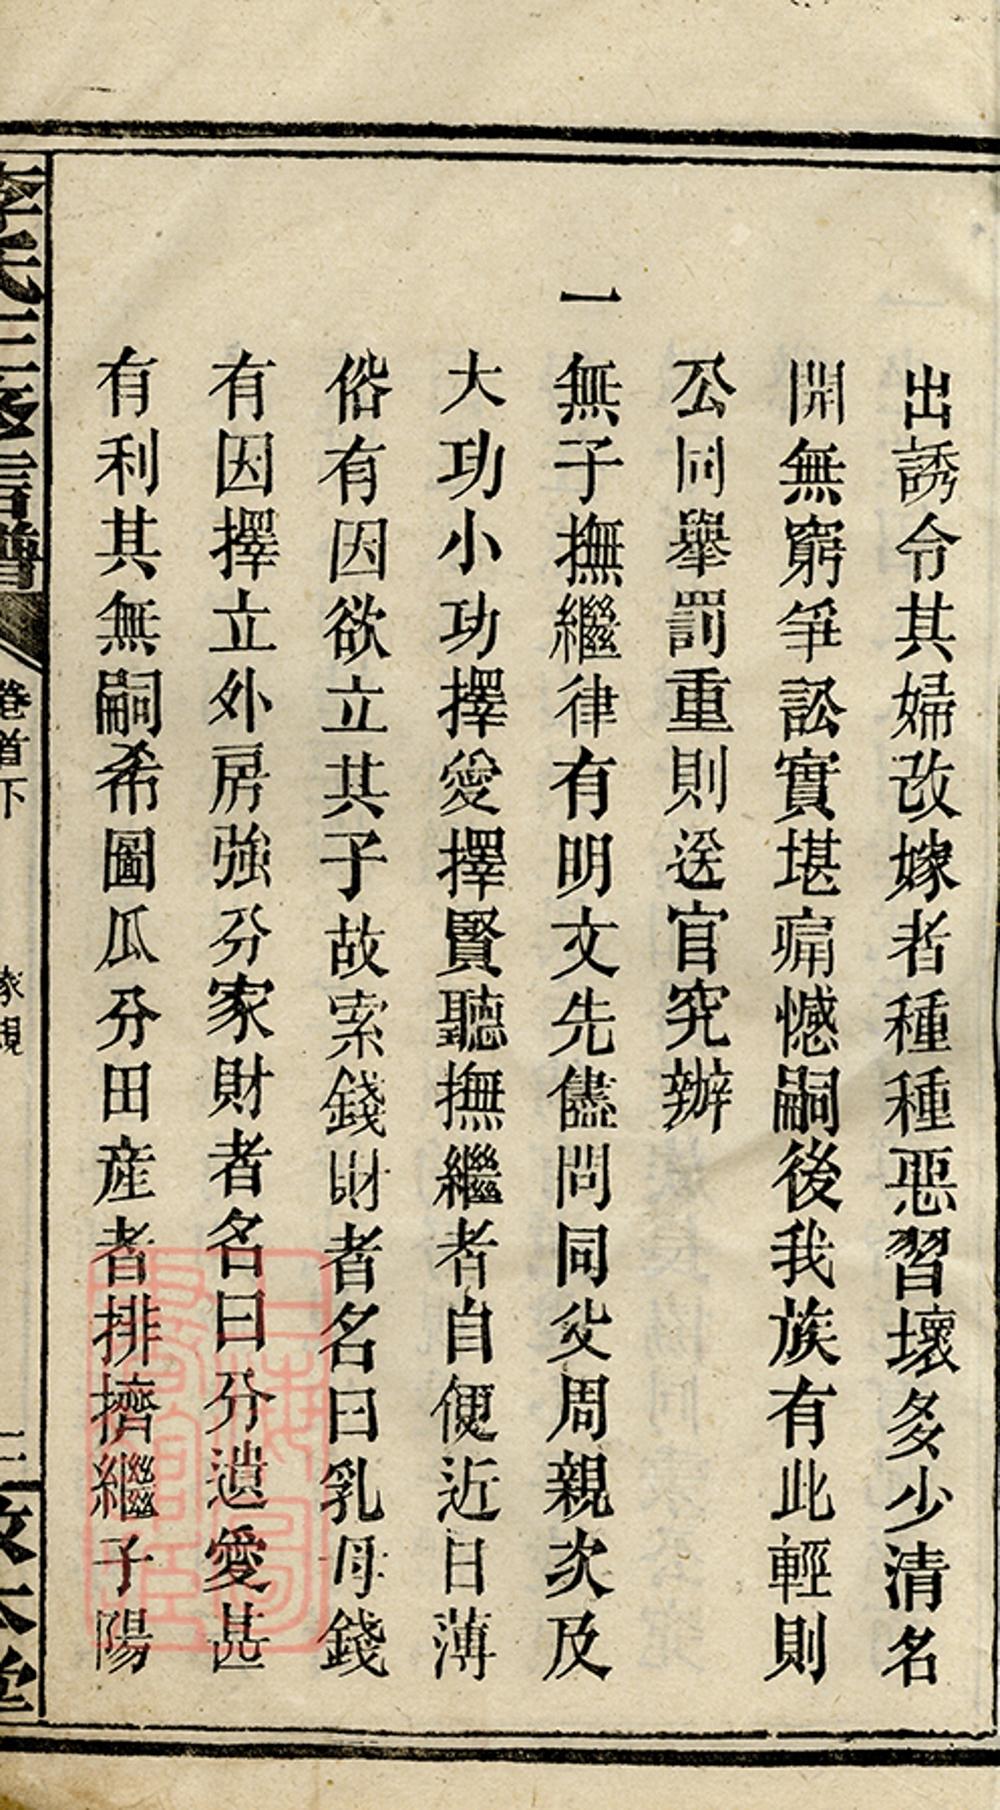 出誘令其婦改嫁者種種惡習壞多少清名
開無窮爭訟實堪痛憾嗣後我族有此輕則
公同舉罰重則送官究辦
一無子撫繼律有明文先儘問同父周親次及
大功小功擇愛擇賢聽撫繼者自便近日薄
俗有因欲立其子故索錢財者名曰乳母錢
有因擇立外房強分家財者名曰分遺愛甚
有利其無嗣希圖瓜分田産者排擠繼子陽
李氏三修支譜
卷首下
家規
三
敦本堂